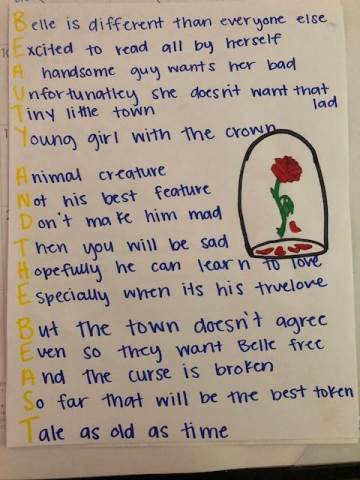 Belle is different than everyone else
Excited to read all by herself
A handsome guy wants her bad
Unfortunatley she doesn't want that lad
Tiny little town
Young girl with the crown
Animal creature
Not his best feature
Don't make him mad
Then you will be sad
Hopefully he can learn to love
Especially when its his truelove
But the town doesn't agree
Even so they want Belle free
And the curse is broken
So far that will be the best token
Tale as old as time